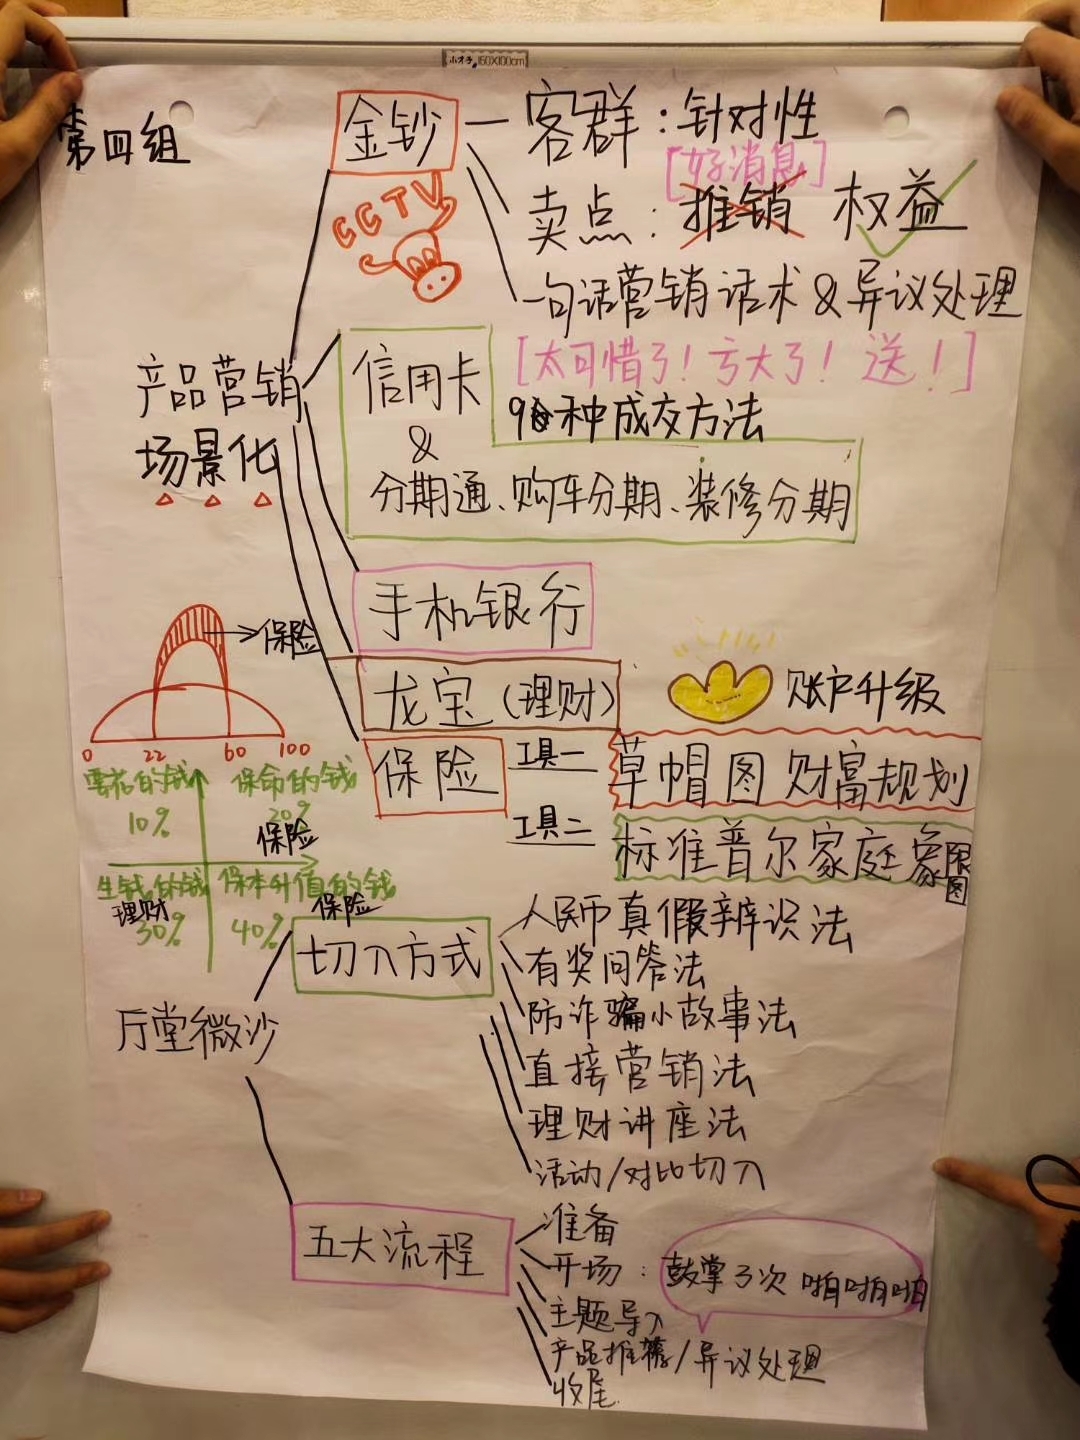 小才子 160X100cm
第四组
金钞
客群：针对性
[好消息]
卖点：推销 权益
一句话营销话术&异议处理
CCTV
产品营销
场景化
信用卡
&
分期通、购车分期、装修分期
[太可惜了！亏大了！送！]
种成交方法
手机银行
龙宝(理财)
账户升级
保险
工具一
草帽图 财富规划
工具二
标准普尔家庭象限图
保险
0 22 60 100
要花的钱
10%
保命的钱
20%
保险
生钱的钱
理财
30%
保本升值的钱
保险
40%
厅堂微沙
切入方式
人民币真假辨识法
有奖问答法
防诈骗小故事法
直接营销法
理财讲座法
活动/对比切入
五大流程
准备
开场：鼓掌3次 啪啪啪
主题导入
产品推荐/异议处理
收尾